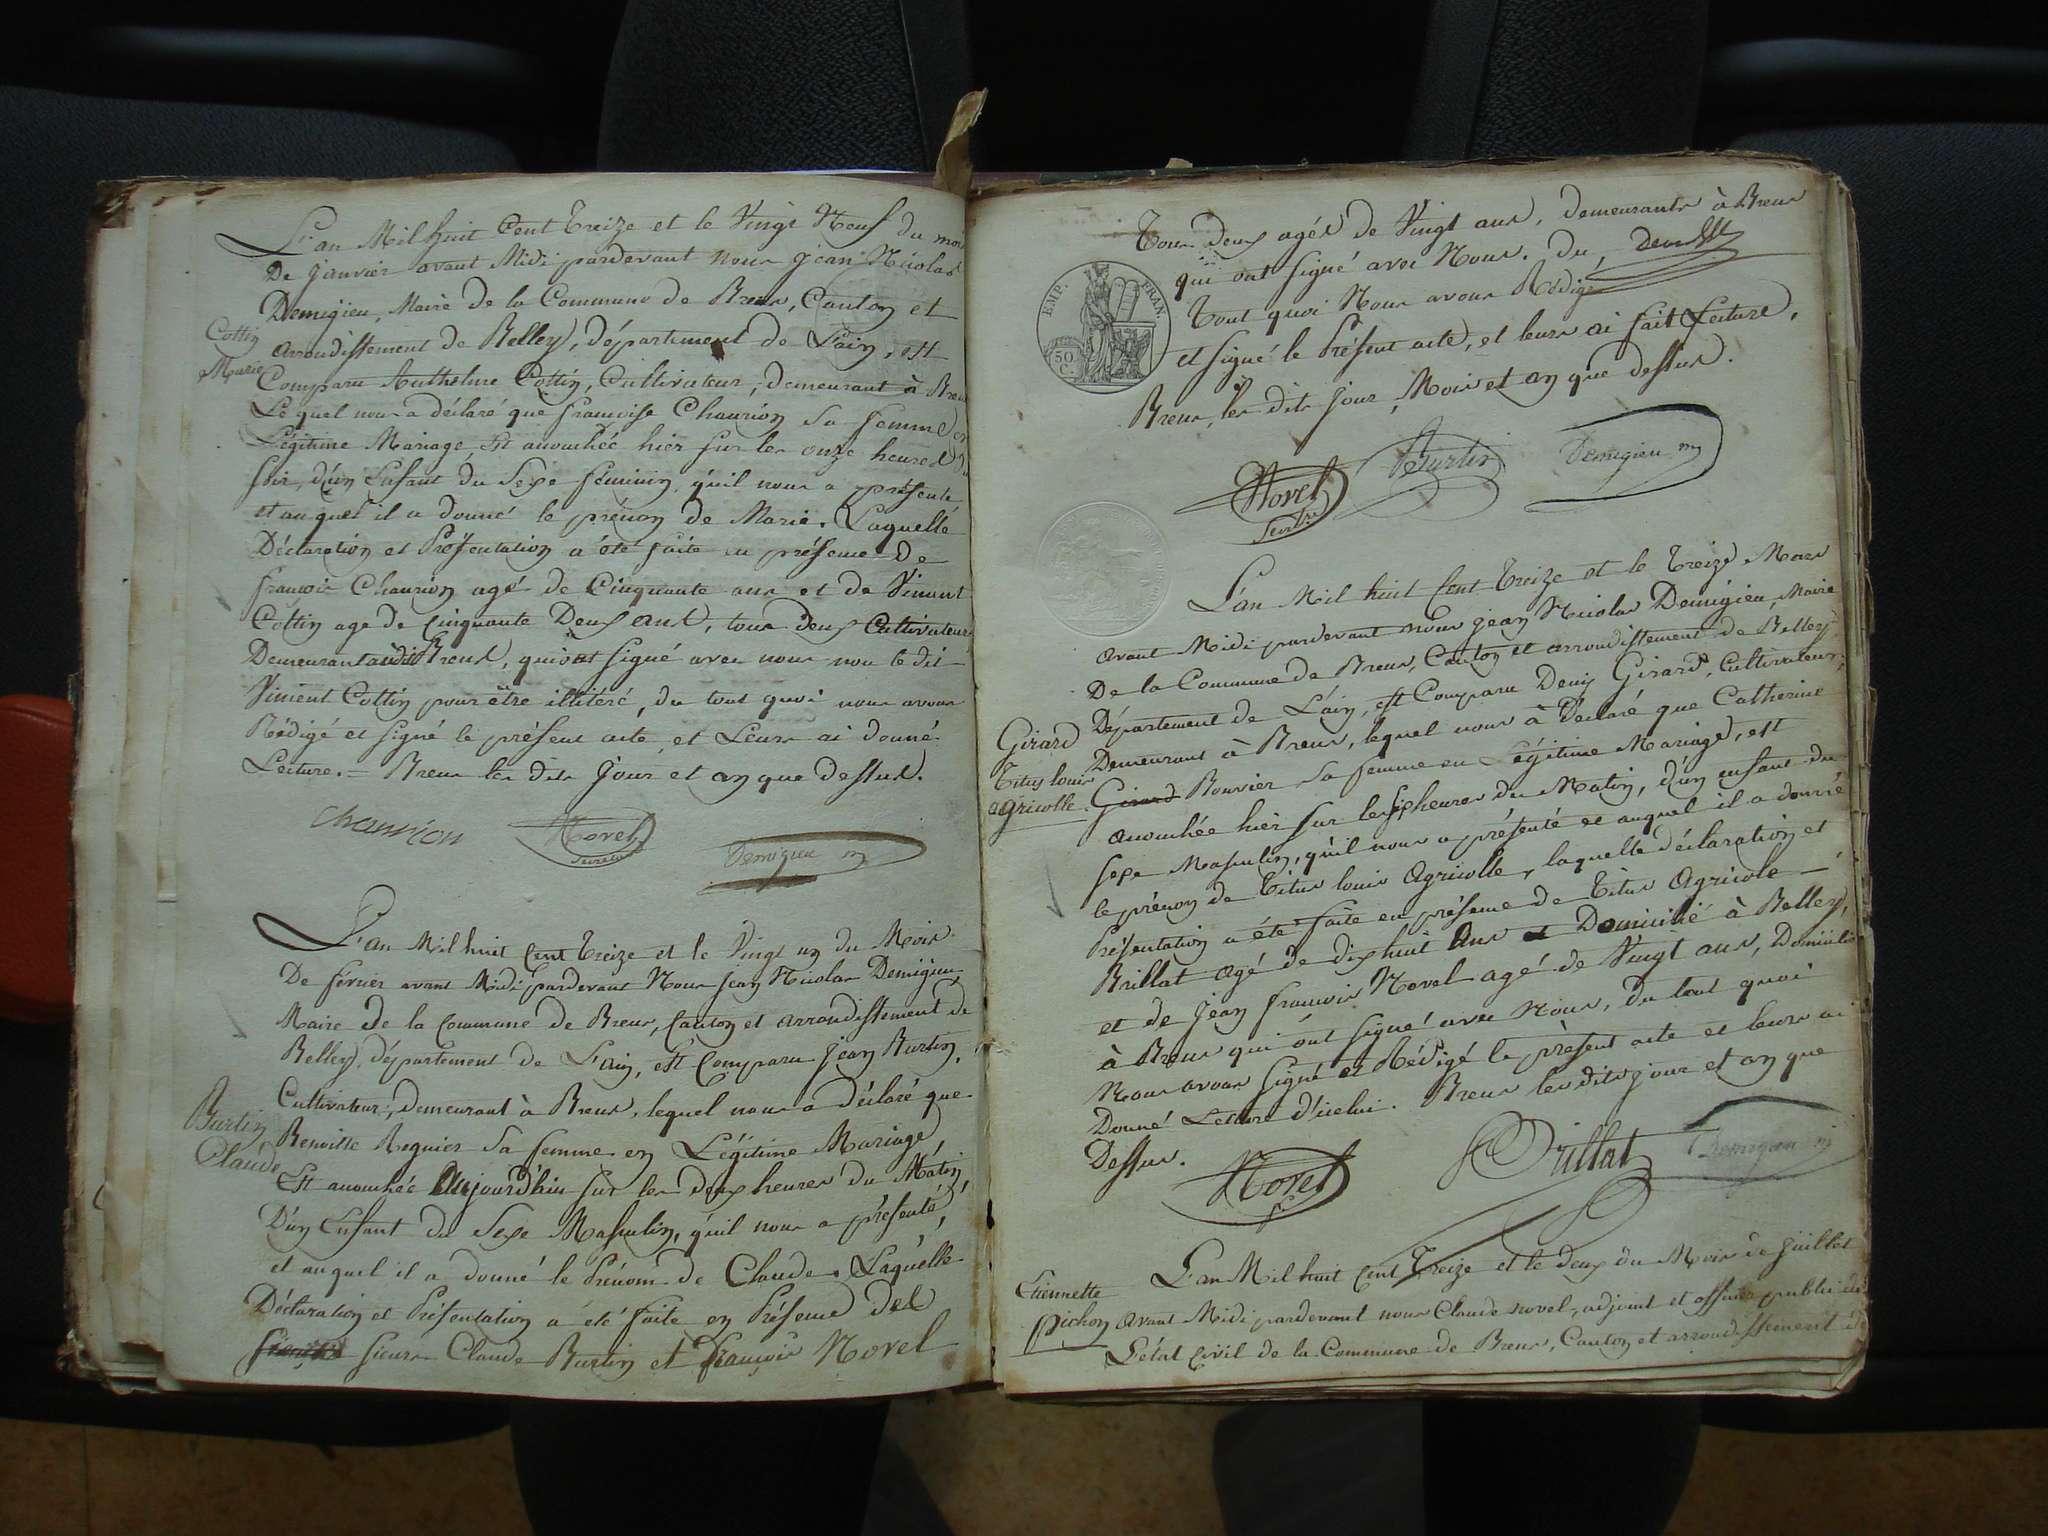 L'an Mil huit Cent Treize et le Vingt Neuf du mois
De Janvier avant Midi pardevant nous Jean Nicolas
Demigieu, Maire de la Commune de Brens, Canton et
arrondissement de Belley, département de L'ain, est
Cottin
Marie
Comparu Anthelme Cottin, Cultivateur, demeurant à Brens
Lequel nous a déclaré que françoise Chaurion Sa femme en
Légitime Mariage, Est acouchée hier sur les onze heures du
soir, d'un Enfant du Sexe féminin, qu'il nous a présenté
et auquel il a donné le prénon de Marie. Laquelle
Déclaration et Présentation a été faite en présence De
françois Chaurion agé de Cinquante ans et de Vincent
Cottin age de Cinquante Deux ans, tous deux Cultivateurs
Demeurant audit Brens, qui ont signé avec nous non le dit
Vincent Cottin pour être illitéré, du tout quoi nous avons
Rédigé et signé le présent acte et Leurs ai donné
Lecture. = Brens les dits Jour et an que dessus.
chaurion Novel Demigieu m
Secretaire
L'an Mil huit Cent Treize et le Vingt un du Mois
De février avant Midi pardevant Nous Jean Nicolas Demigieu,
Maire de la Commune de Brens, Canton et arrondissement de
Belley, département de L'ain, est Comparu Jean Burtin,
Cultivateur, demeurant à Brens, lequel nous a déclaré que
Burtin
Claude
Benoitte Reguier sa femme en Légitime Mariage
Est acouchée Aujourd'hui sur les deux heures du Matin,
D'un Enfant du Sexe Masculin, qu'il nous a présenté,
et auquel il a donné le Prénom de Claude. Laquelle
Déclaration et Présentation a été faite en Présence des
sieurs Claude Burtin et françois Novel
Tous deux agés de Vingt ans, demeurants à Brens
qui ont signé avec Nous. du,
EMP. FRAN.
50 C.
Tout quoi Nous avons Rédigé
et signé le Présent acte, et leurs ai fait Lecture,
Brens, les dits Jour, Mois et an que dessus.
Novel Burtin Demigieu m
Secretre
L'an Mil huit Cent Treize et le Treize Mars
avant Midi pardevant nous Jean Nicolas Demigieu, Maire
De la Commune de Brens, Canton et arrondissement de Belley
Département de L'ain, est Comparu Deny Girard, Cultivateur,
Demeurant à Brens, lequel nous à Déclaré que Catherine
Girard
Titus louis
agricolle
Girard Bouvier Sa femme en Légitime Mariage, est
acouchée hier sur les six heures du Matin, d'un enfant du
sexe Masculin, qu'il nous a présenté et auquel il a donné
le prénon de Titus louis Agricolle, laquelle déclaration et
Présentation a été faite en présence de Titus Agricole
Brillat agé de dix huit Ans Domicilié à Belley,
et de Jean françois Novel agé de Vingt ans, Domicilié
à Brens qui ont signé avec Nous, du tout quoi
Nous avons signé et Rédigé le présent acte et leurs ai
Donné Lecture d'icelui. Brens les dits jour et an que
Dessus. Novel Brillat Demigieu m
Etiennette
Pichon
L'an Mil huit Cent Treize et le deux du Mois de Juillet
avant Midi pardevant nous Claude novel, adjoint et officier public de
L'état Civil de la Commune de Brens, Canton et arrondissement de